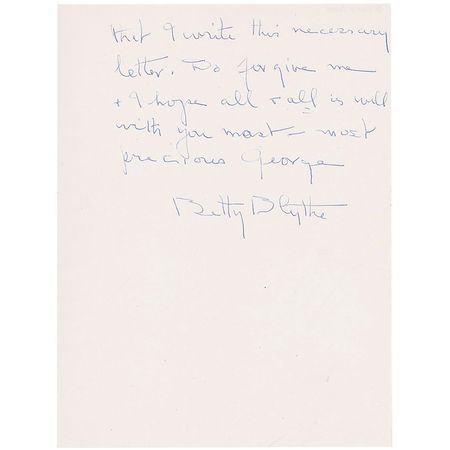 that I write this necessary
letter. Do forgive me
+ I hope all + all is well
with you most – most
precious George
Betty Blythe